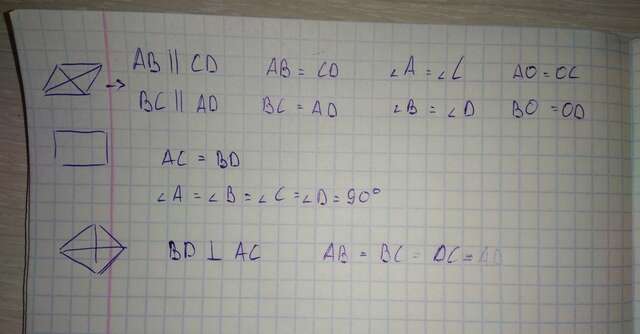 → AB || CD AB = CD ∠A = ∠C AO = OC
BC || AD BC = AD ∠B = ∠D BO = OD
AC = BD
∠A = ∠B = ∠C = ∠D = 90°
BD ⊥ AC AB = BC = DC = AD